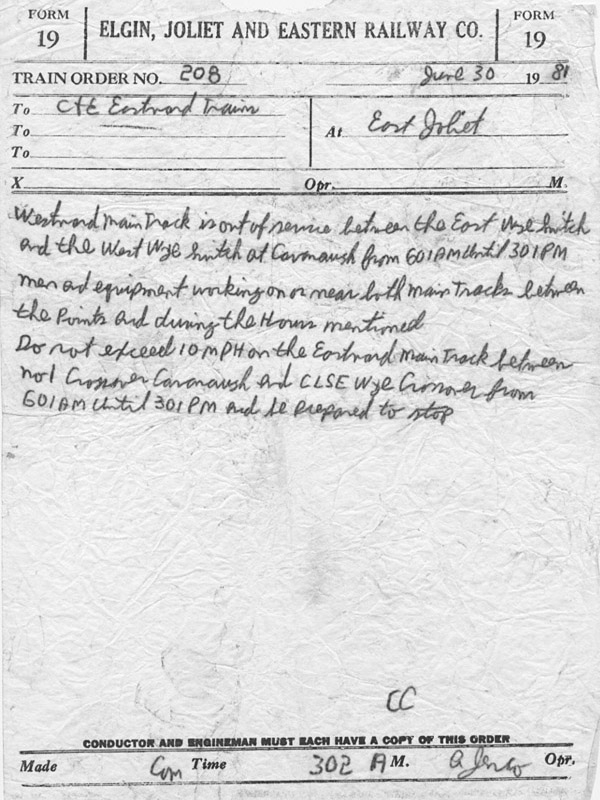 FORM 19 ELGIN, JOLIET AND EASTERN RAILWAY CO. FORM 19
TRAIN ORDER NO. 208 June 30 19 81
To C&E Eastward Trains
To At East Joliet
To
X Opr. M.
Westward Main Track is out of service between the East Wye Switch
and the West Wye Switch at Cavanaugh from 601 AM Until 301 PM
men and equipment working on or near both Main Tracks between
the Points and during the Hours mentioned
Do not exceed 10 MPH on the Eastward Main Track between
No 1 Crossover Cavanaugh and CLSE Wye Crossover from
601 AM Until 301 PM and be prepared to stop
CC
CONDUCTOR AND ENGINEMAN MUST EACH HAVE A COPY OF THIS ORDER
Made Com Time 302 A M. Opr.